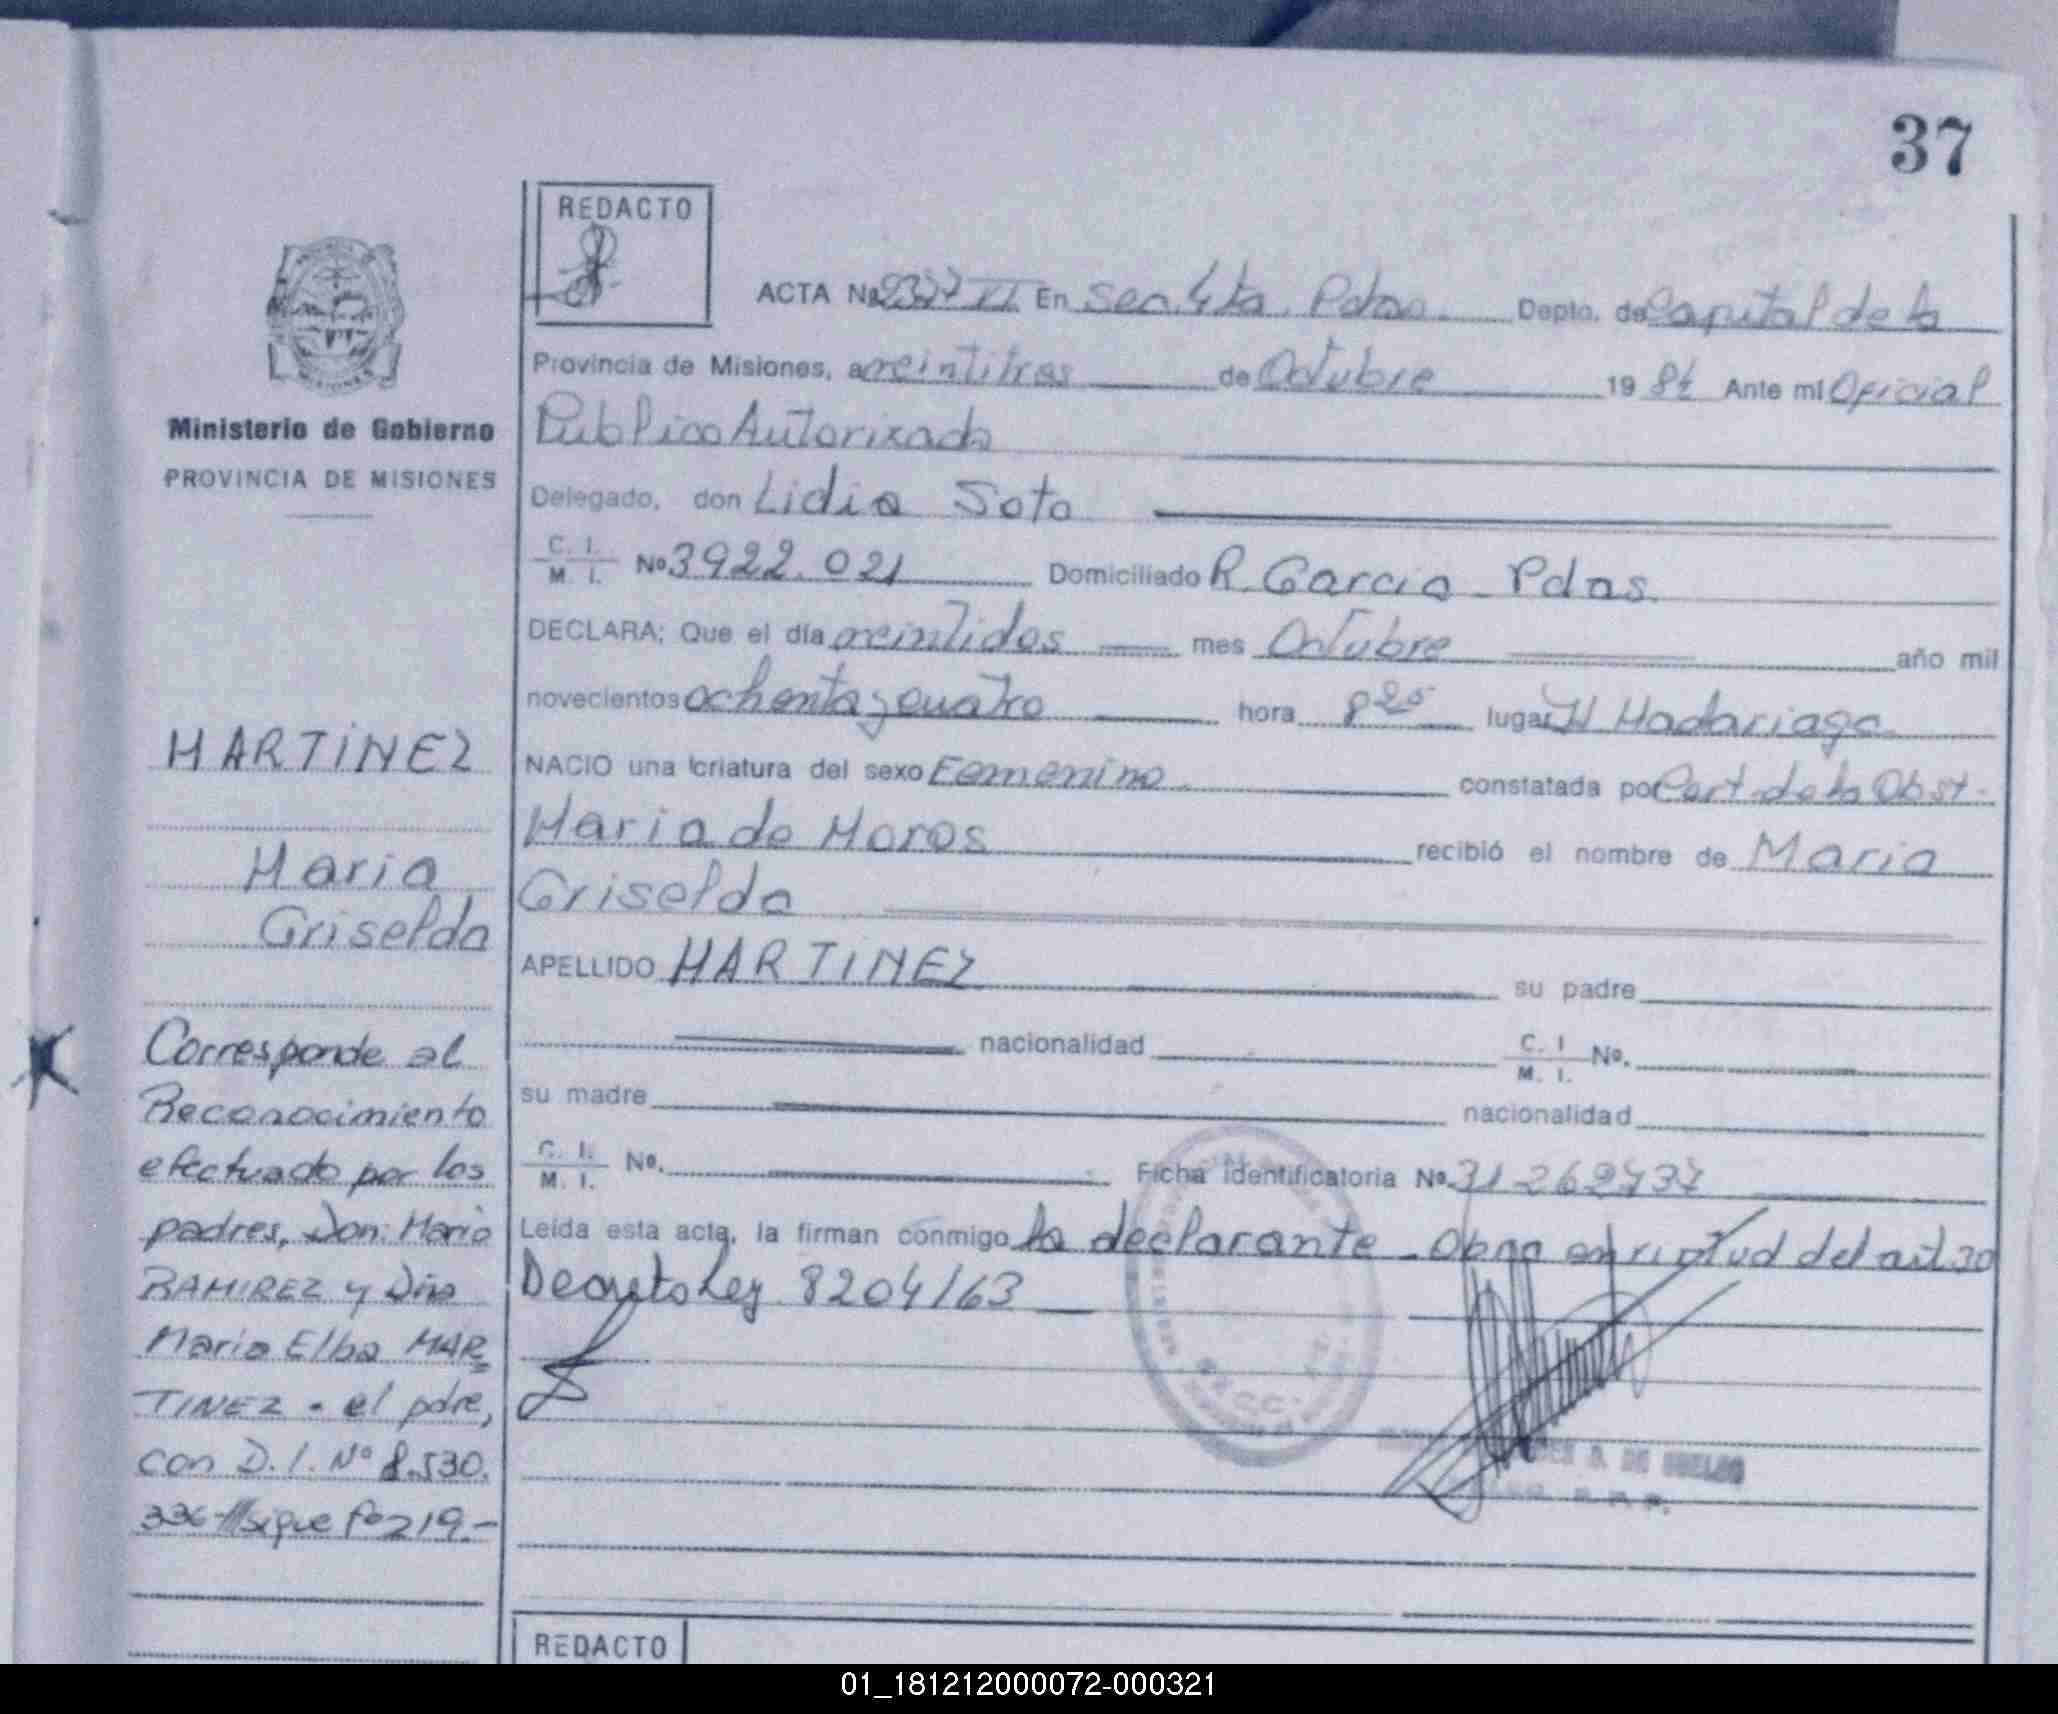 37
REDACTO
ACTA Nº 2327 VI En Sec. 4ta. Pdas. Depto. de Capital de la
Provincia de Misiones, a veintitres de Octubre 1984 Ante mi Oficial
Publico Autorizado
Delegado, don Lidia Soto
C. I.
M. I. Nº 3922.021 Domiciliado R. Garcia - Pdas.
DECLARA; Que el día veintidos mes Octubre año mil
novecientos ochenta y cuatro hora 8 20 lugar H Madariaga
NACIO una criatura del sexo Femenino constatada por Cert. de la Obst.
Maria de Moros recibió el nombre de Maria
Griselda
APELLIDO MARTINEZ su padre
nacionalidad C. I
M. I. Nº.
su madre nacionalidad
C. I.
M. I. Nº. Ficha identificatoria Nº 31-262737
Leída esta acta, la firman conmigo la declarante - Obra en virtud del art. 30
Decreto Ley 8204/63
Ministerio de Gobierno
PROVINCIA DE MISIONES
MARTINEZ
Maria
Griselda
Corresponde al
Reconocimiento
efectuado por los
padres, Don: Mario
RAMIREZ y Dña
Maria Elba MAR-
TINEZ - el pdre,
con D.I. Nº 8.530.
336-//sigue fº 219.-
REDACTO
01_181212000072-000321